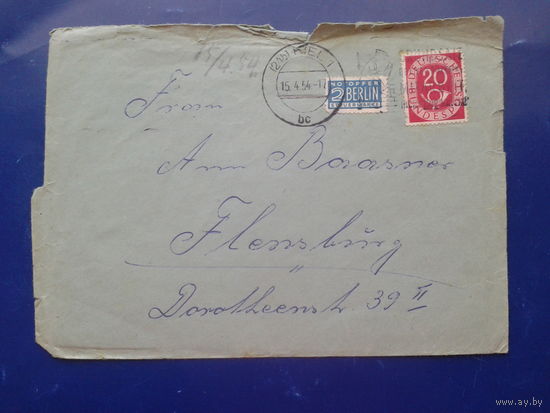 15/4.54
(24b) KIEL 1
15.4.54-17
bc
NOTOPFER
2 BERLIN
STEUERMARKE
20
DEUTSCHE BUNDESPOST
Frau
Anna Baasner
Flensburg
"
Dorotheenstr. 39 II
www.ay.by